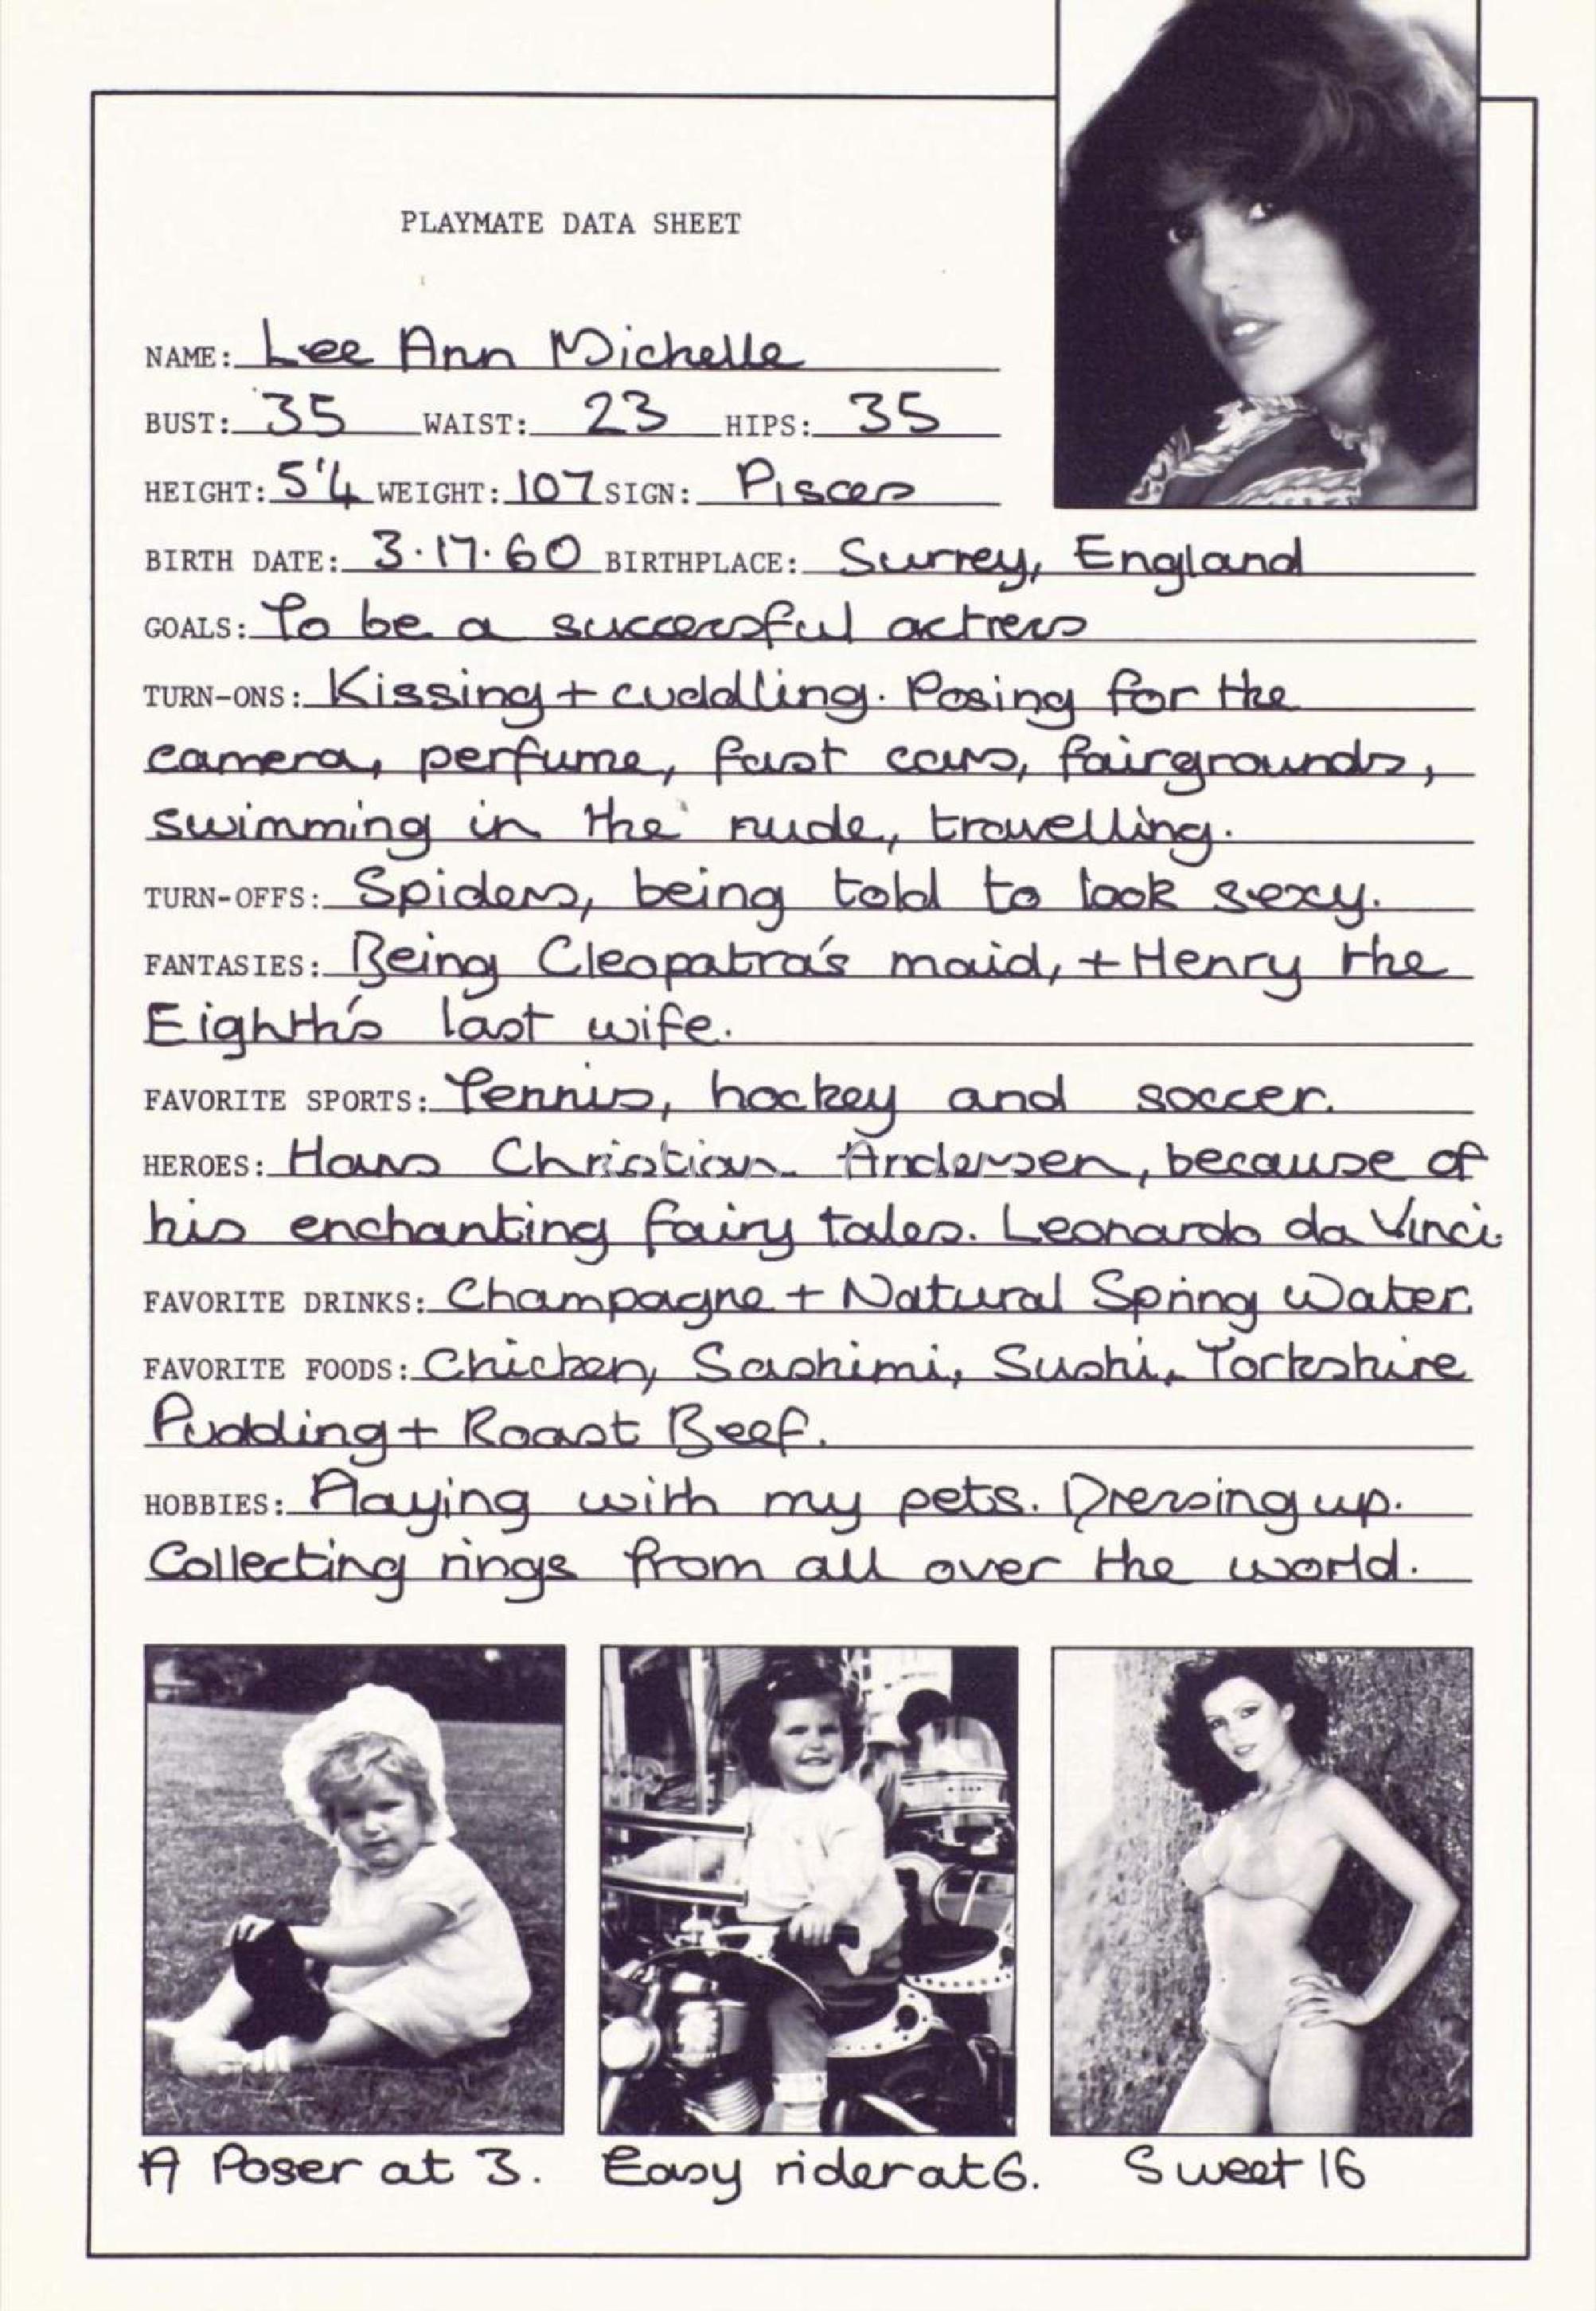 PLAYMATE DATA SHEET
NAME: Lee Ann Michelle
BUST: 35 WAIST: 23 HIPS: 35
HEIGHT: 5'4 WEIGHT: 107 SIGN: Pisces
BIRTH DATE: 3.17.60 BIRTHPLACE: Surrey, England
GOALS: To be a successful actress
TURN-ONS: Kissing + cuddling. Posing for the
camera, perfume, fast cars, fairgrounds,
swimming in the nude, travelling.
TURN-OFFS: Spiders, being told to look sexy.
FANTASIES: Being Cleopatra's maid, + Henry the
Eighth's last wife.
FAVORITE SPORTS: Tennis, hockey and soccer.
HEROES: Hans Christian Andersen, because of
his enchanting fairy tales. Leonardo da Vinci.
FAVORITE DRINKS: Champagne + Natural Spring Water.
FAVORITE FOODS: Chicken, Sashimi, Sushi, Yorkshire
Pudding + Roast Beef.
HOBBIES: Playing with my pets. Dressing up.
Collecting rings from all over the world.
A Poser at 3. Easy rider at 6. Sweet 16